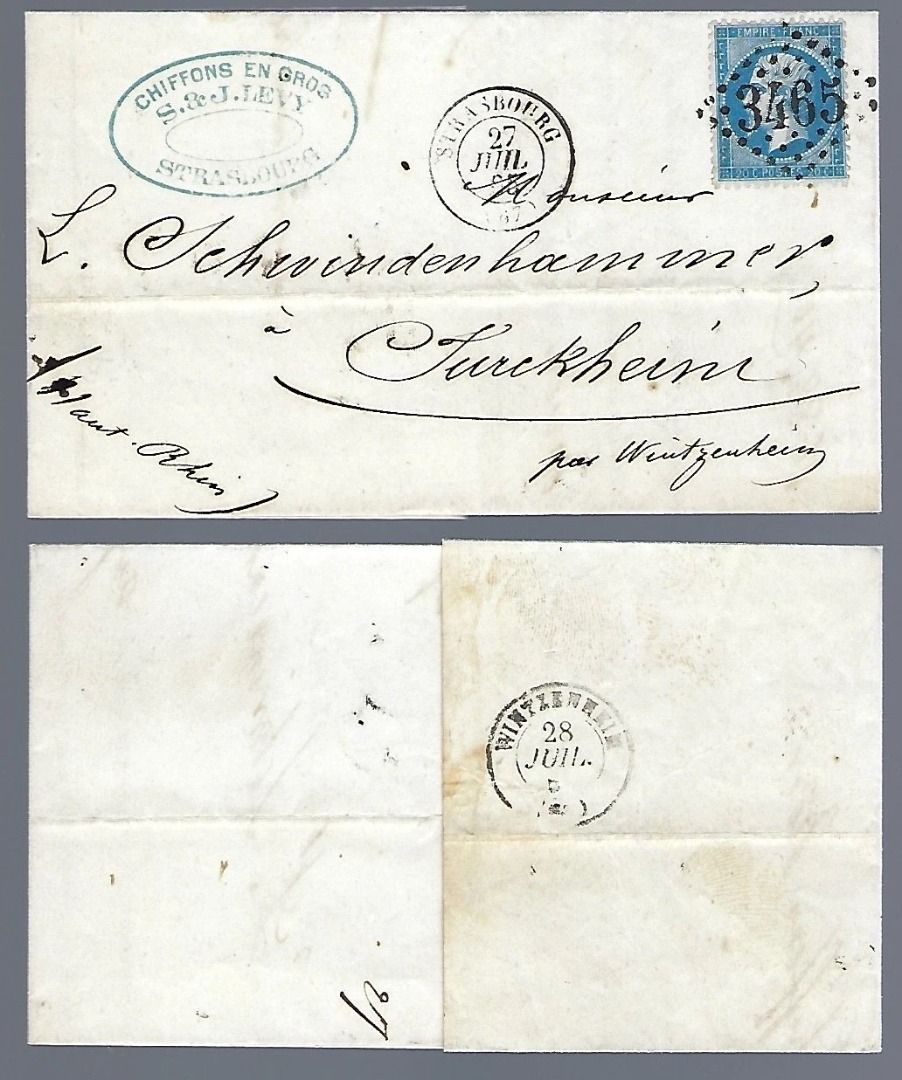 CHIFFONS EN GROS
S. & J. LEVY
STRASBOURG
STRASBOURG
27
JUIL
(67)
EMPIRE FRANC
3465
20 C POSTES 20 C
Monsieur
L. Schwindenhammer,
à
Turckheim
Haut-Rhin
par Wintzenheim
WINTZENHEIM
28
JUIL.
27